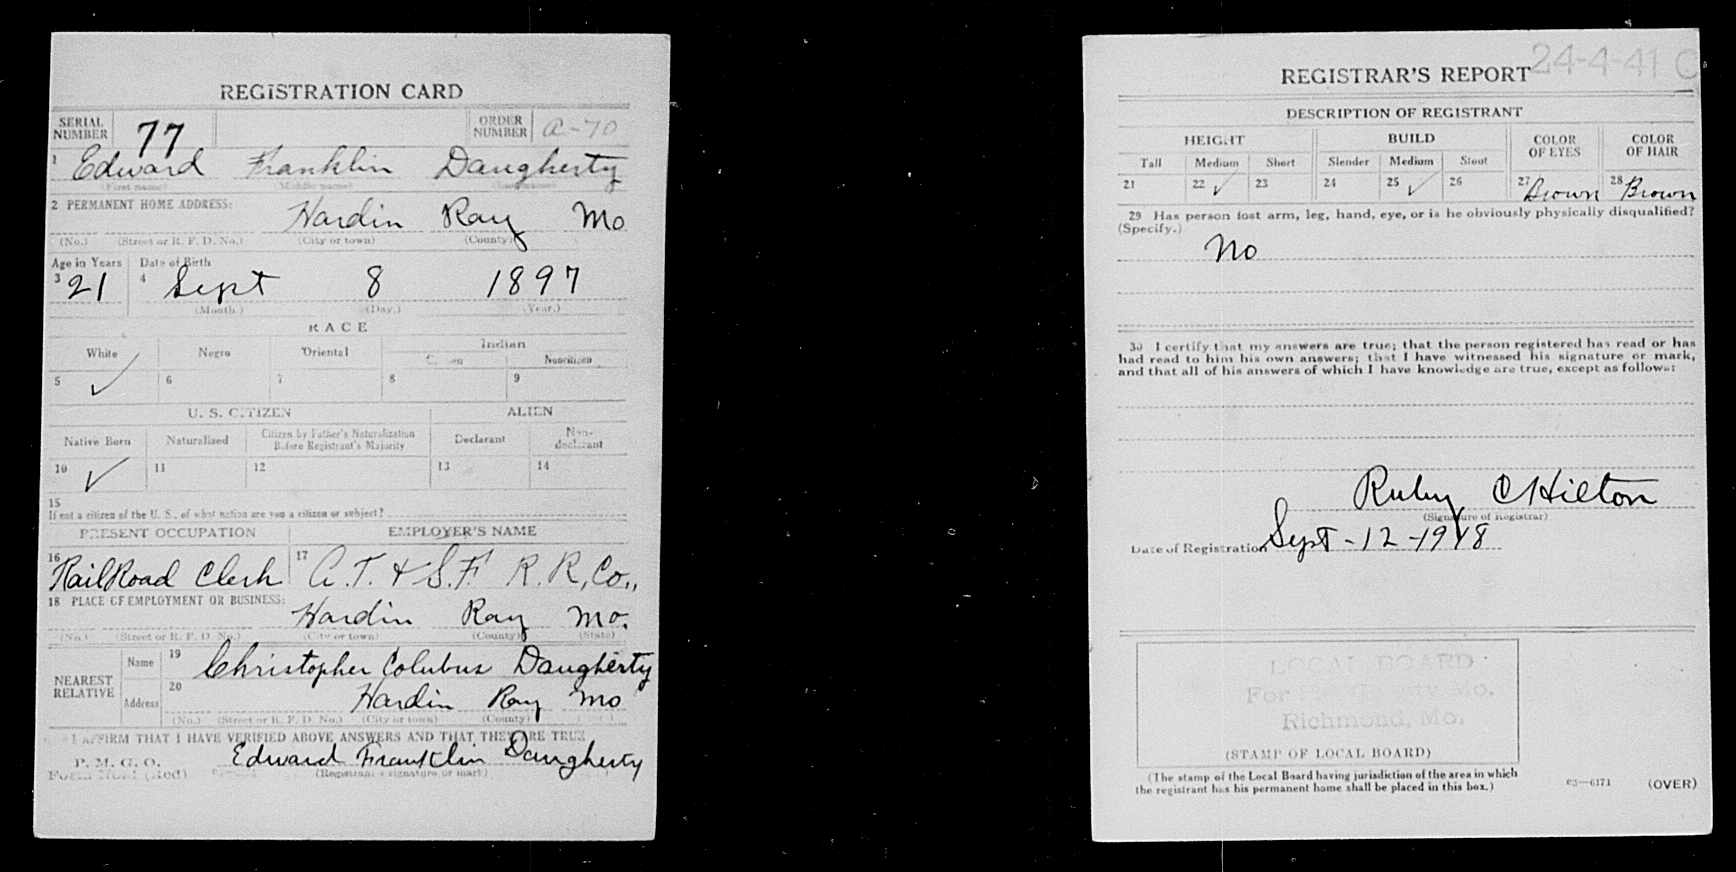 REGISTRATION CARD
SERIAL NUMBER 77 ORDER NUMBER A-70
1 Edward Franklin Daugherty
(First name) (Middle name) (Last name)
2 PERMANENT HOME ADDRESS:
Hardin Ray Mo
(No.) (Street or R. F. D. No.) (City or town) (County)
Age in Years Date of Birth
3 21 4 Sept 8 1897
(Month.) (Day.) (Year.)
RACE
White Negro Oriental Indian
Noncitizen
5 ✓ 6 7 8 9
U. S. CITIZEN ALIEN
Native Born Naturalized Citizen by Father's Naturalization Before Registrant's Majority Declarant Non-declarant
10 ✓ 11 12 13 14
15
If not a citizen of the U. S., of what nation are you a citizen or subject?
PRESENT OCCUPATION EMPLOYER'S NAME
16 RailRoad Clerk 17 A. T. & S. F. R. R, Co.,
18 PLACE OF EMPLOYMENT OR BUSINESS:
Hardin Ray Mo.
(No.) (Street or R. F. D. No.) (City or town) (County) (State)
NEAREST RELATIVE
Name 19 Christopher Colubus Daugherty
Address 20 Hardin Ray Mo
(No.) (Street or R. F. D. No.) (City or town) (County)
I AFFIRM THAT I HAVE VERIFIED ABOVE ANSWERS AND THAT THEY ARE TRUE
P. M. G. O.
Form (Red)
Edward Franklin Daugherty
(Registrant's signature or mark)
24-4-41 C
REGISTRAR'S REPORT
DESCRIPTION OF REGISTRANT
HEIGHT BUILD COLOR OF EYES COLOR OF HAIR
Tall Medium Short Slender Medium Stout
21 22 ✓ 23 24 25 ✓ 26 27 Brown 28 Brown
29 Has person lost arm, leg, hand, eye, or is he obviously physically disqualified?
(Specify.)
No
30 I certify that my answers are true; that the person registered has read or has
had read to him his own answers; that I have witnessed his signature or mark,
and that all of his answers of which I have knowledge are true, except as follows:
Ruby C Hilton
(Signature of Registrar)
Date of Registration Sept-12-1918
LOCAL BOARD
For Mo.
Richmond, Mo.
(STAMP OF LOCAL BOARD)
(The stamp of the Local Board having jurisdiction of the area in which
the registrant has his permanent home shall be placed in this box.)
03—6171 (OVER)